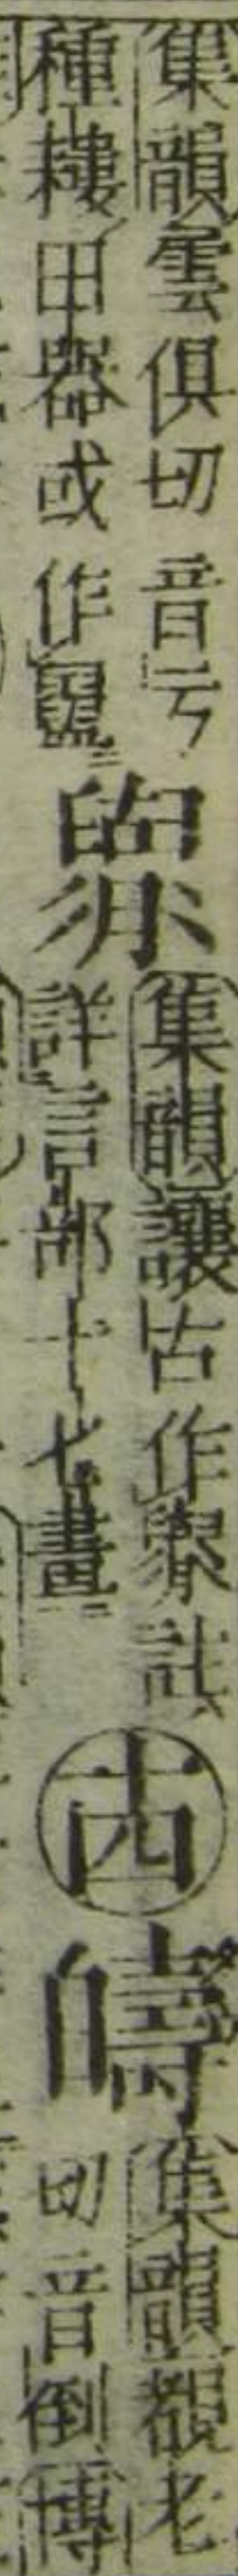 集韻雲俱切音亏
種耬田器或作
集韻讓古作註
詳言部十七畫
十四
集韻覩老
切音倒博